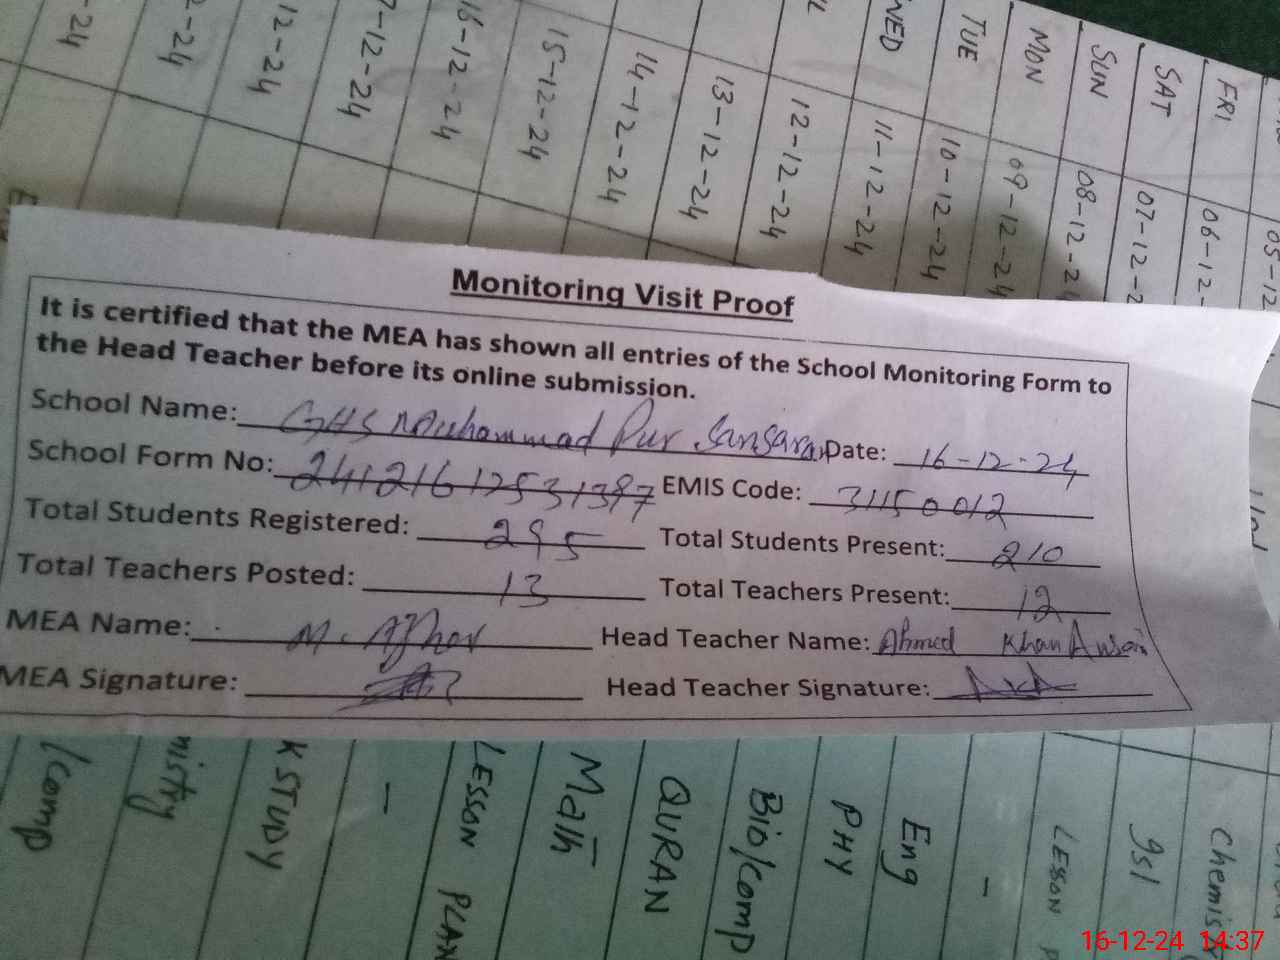 WED TUE MON SUN SAT FRI
7-12-24 16-12-24 15-12-24 14-12-24 13-12-24 12-12-24 11-12-24 10-12-24 09-12-24 08-12-24 07-12-2 06-12- 05-12
Monitoring Visit Proof
It is certified that the MEA has shown all entries of the School Monitoring Form to
the Head Teacher before its online submission.
School Name: GHS Muhammad Pur Sansaran Date: 16-12-24
School Form No: EMIS Code: 31150012
Total Students Registered: 295 Total Students Present: 210
Total Teachers Posted: 13 Total Teachers Present: 12
MEA Name: Head Teacher Name: Ahmed Khan Ansari
MEA Signature: Head Teacher Signature:
/Comp mistry K STUDY - LESSON PLAN Math QURAN Bio/Comp PHY Eng - LESSON P Isl Chemist
16-12-24 14:37